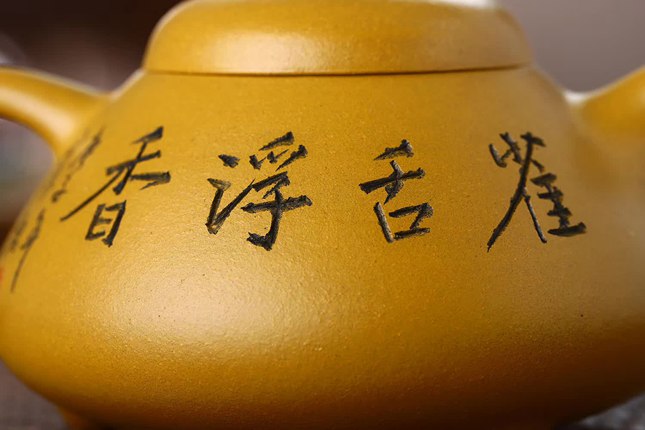 雀舌浮香